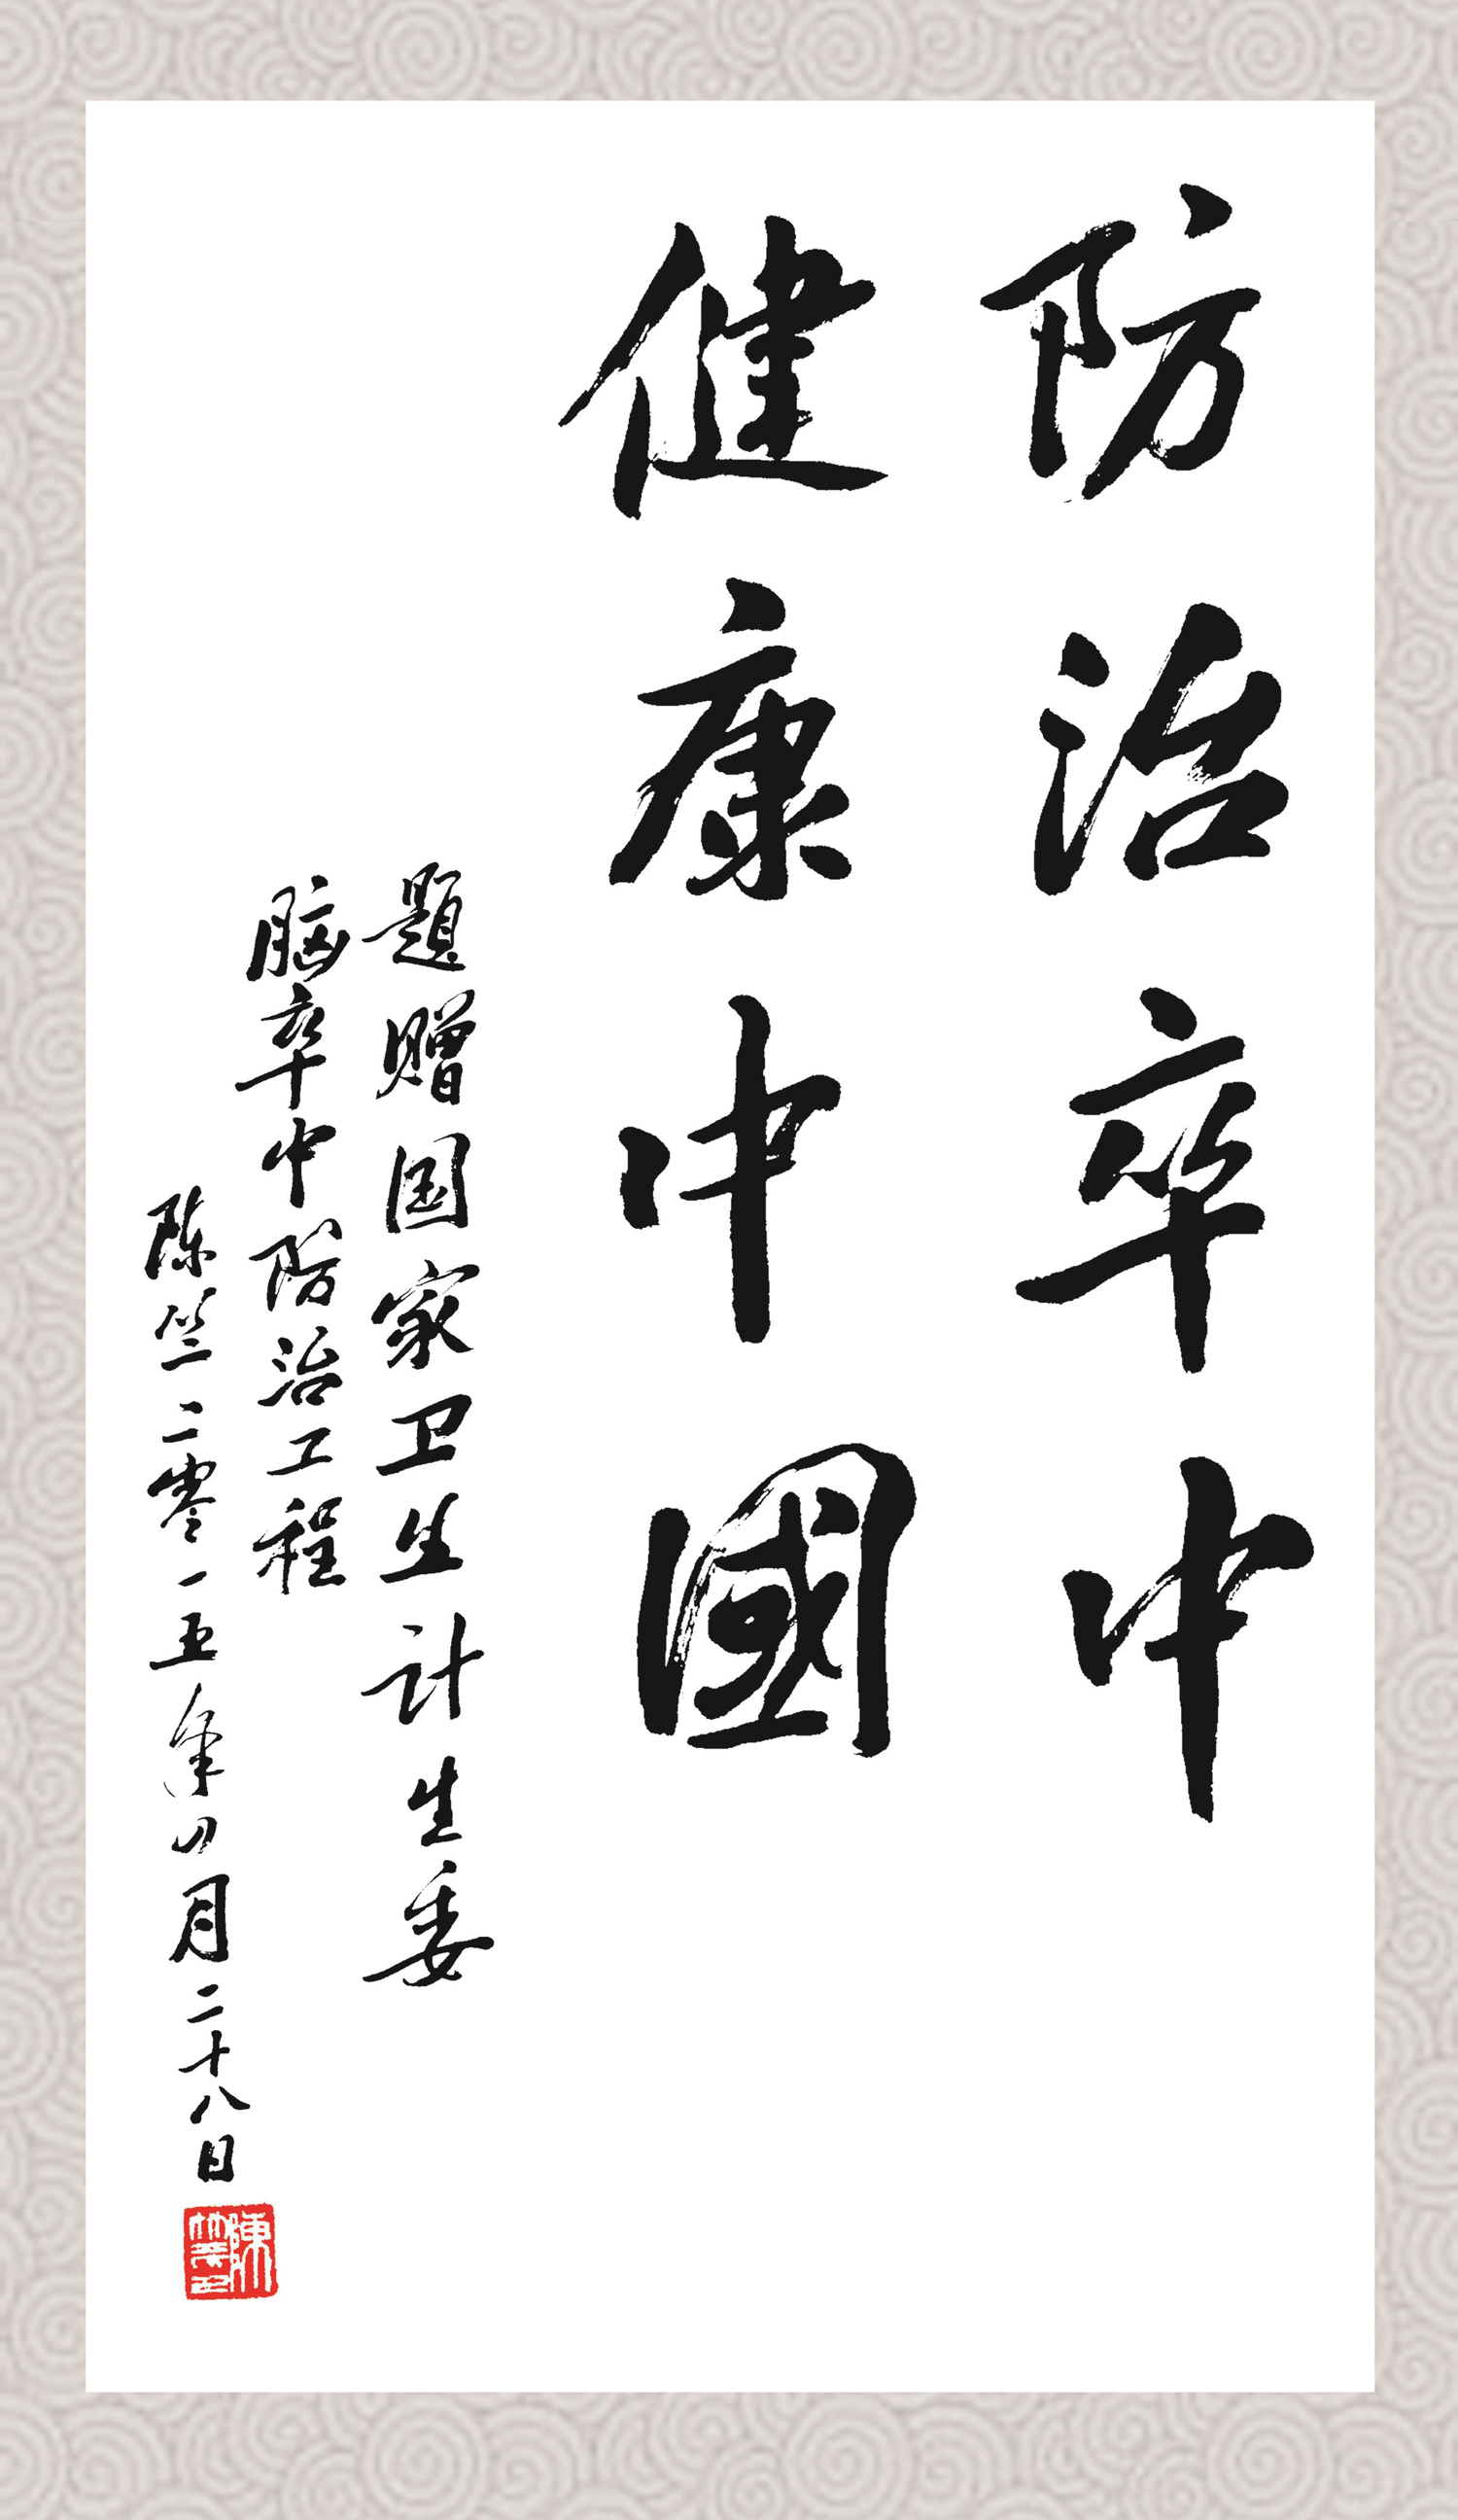 防治卒中
健康中國
题赠国家卫生计生委
脑卒中防治工程
陈竺二零一五年四月二十八日
陳竺印